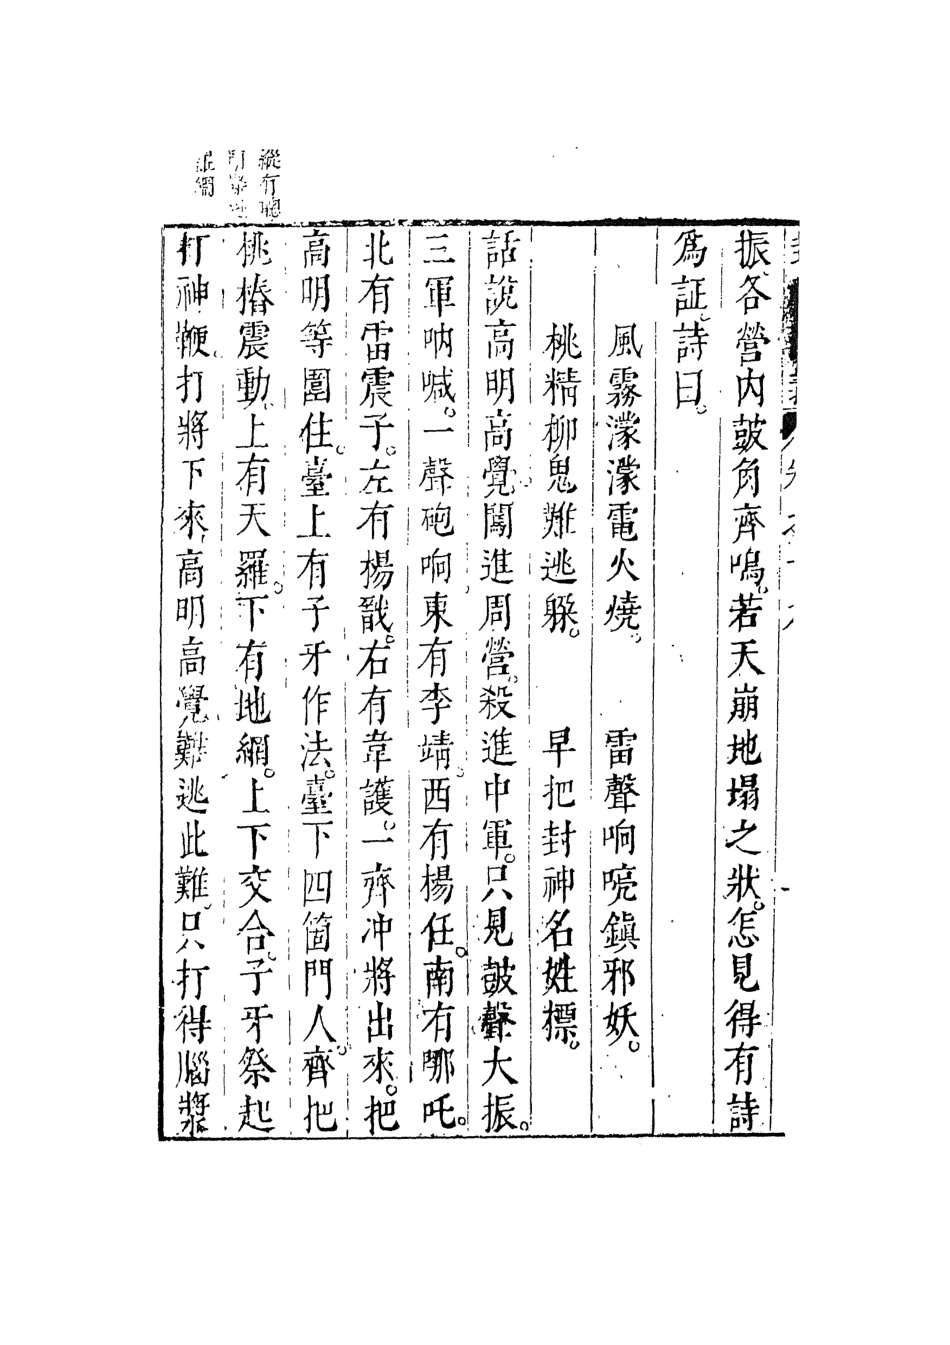 振各營內鼓角齊鳴。若天崩地塌之狀。怎見得有詩
爲証。詩曰。
風霧濛濛電火燒。　雷聲响喨鎮邪妖。
桃精柳鬼難逃躱。　早把封神名姓標。
話說高明高覺闖進周營。殺進中軍。只見鼓聲大振。
三軍吶喊。一聲砲响東有李靖。西有楊任。南有哪吒。
北有雷震子。左有楊戩。右有韋護。一齊冲將出來。把
高明等圍住。臺上有子牙作法。臺下四箇門人。齊把
桃樁震動。上有天羅。下有地網。上下交合。子牙祭起
打神鞭。打將下來。高明高覺難逃此難。只打得腦漿
縱有聰
明
網